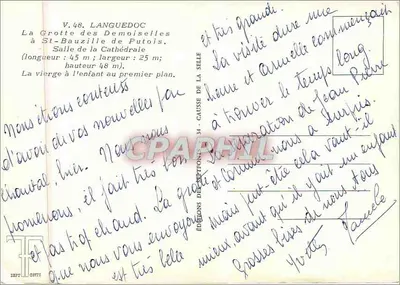 V. 48. LANGUEDOC
La Grotte des Demoiselles
à St-Bauzille de Putois.
Salle de la Cathédrale
(longueur : 45 m ; largeur : 25 m ;
hauteur 48 m).
La vierge à l'enfant au premier plan.
Nous étions contents
d'avoir de vos nouvelles par
Chantal, hier. Nous nous
promenons, il fait très bon
et pas trop chaud. La grotte
que nous vous envoyons
est très belle
et très grande.
La visite dure une
heure et Armelle commençait
à trouver le temps long.
La séparation de Jean Pierre
et nous a surpris.
mais peut-être cela vaut-il
mieux avant qu'il y ait un enfant
Grosses bises de nous tous
Yvette
EDITIONS 34 - CAUSSE DE LA SELLE
CPARAMA